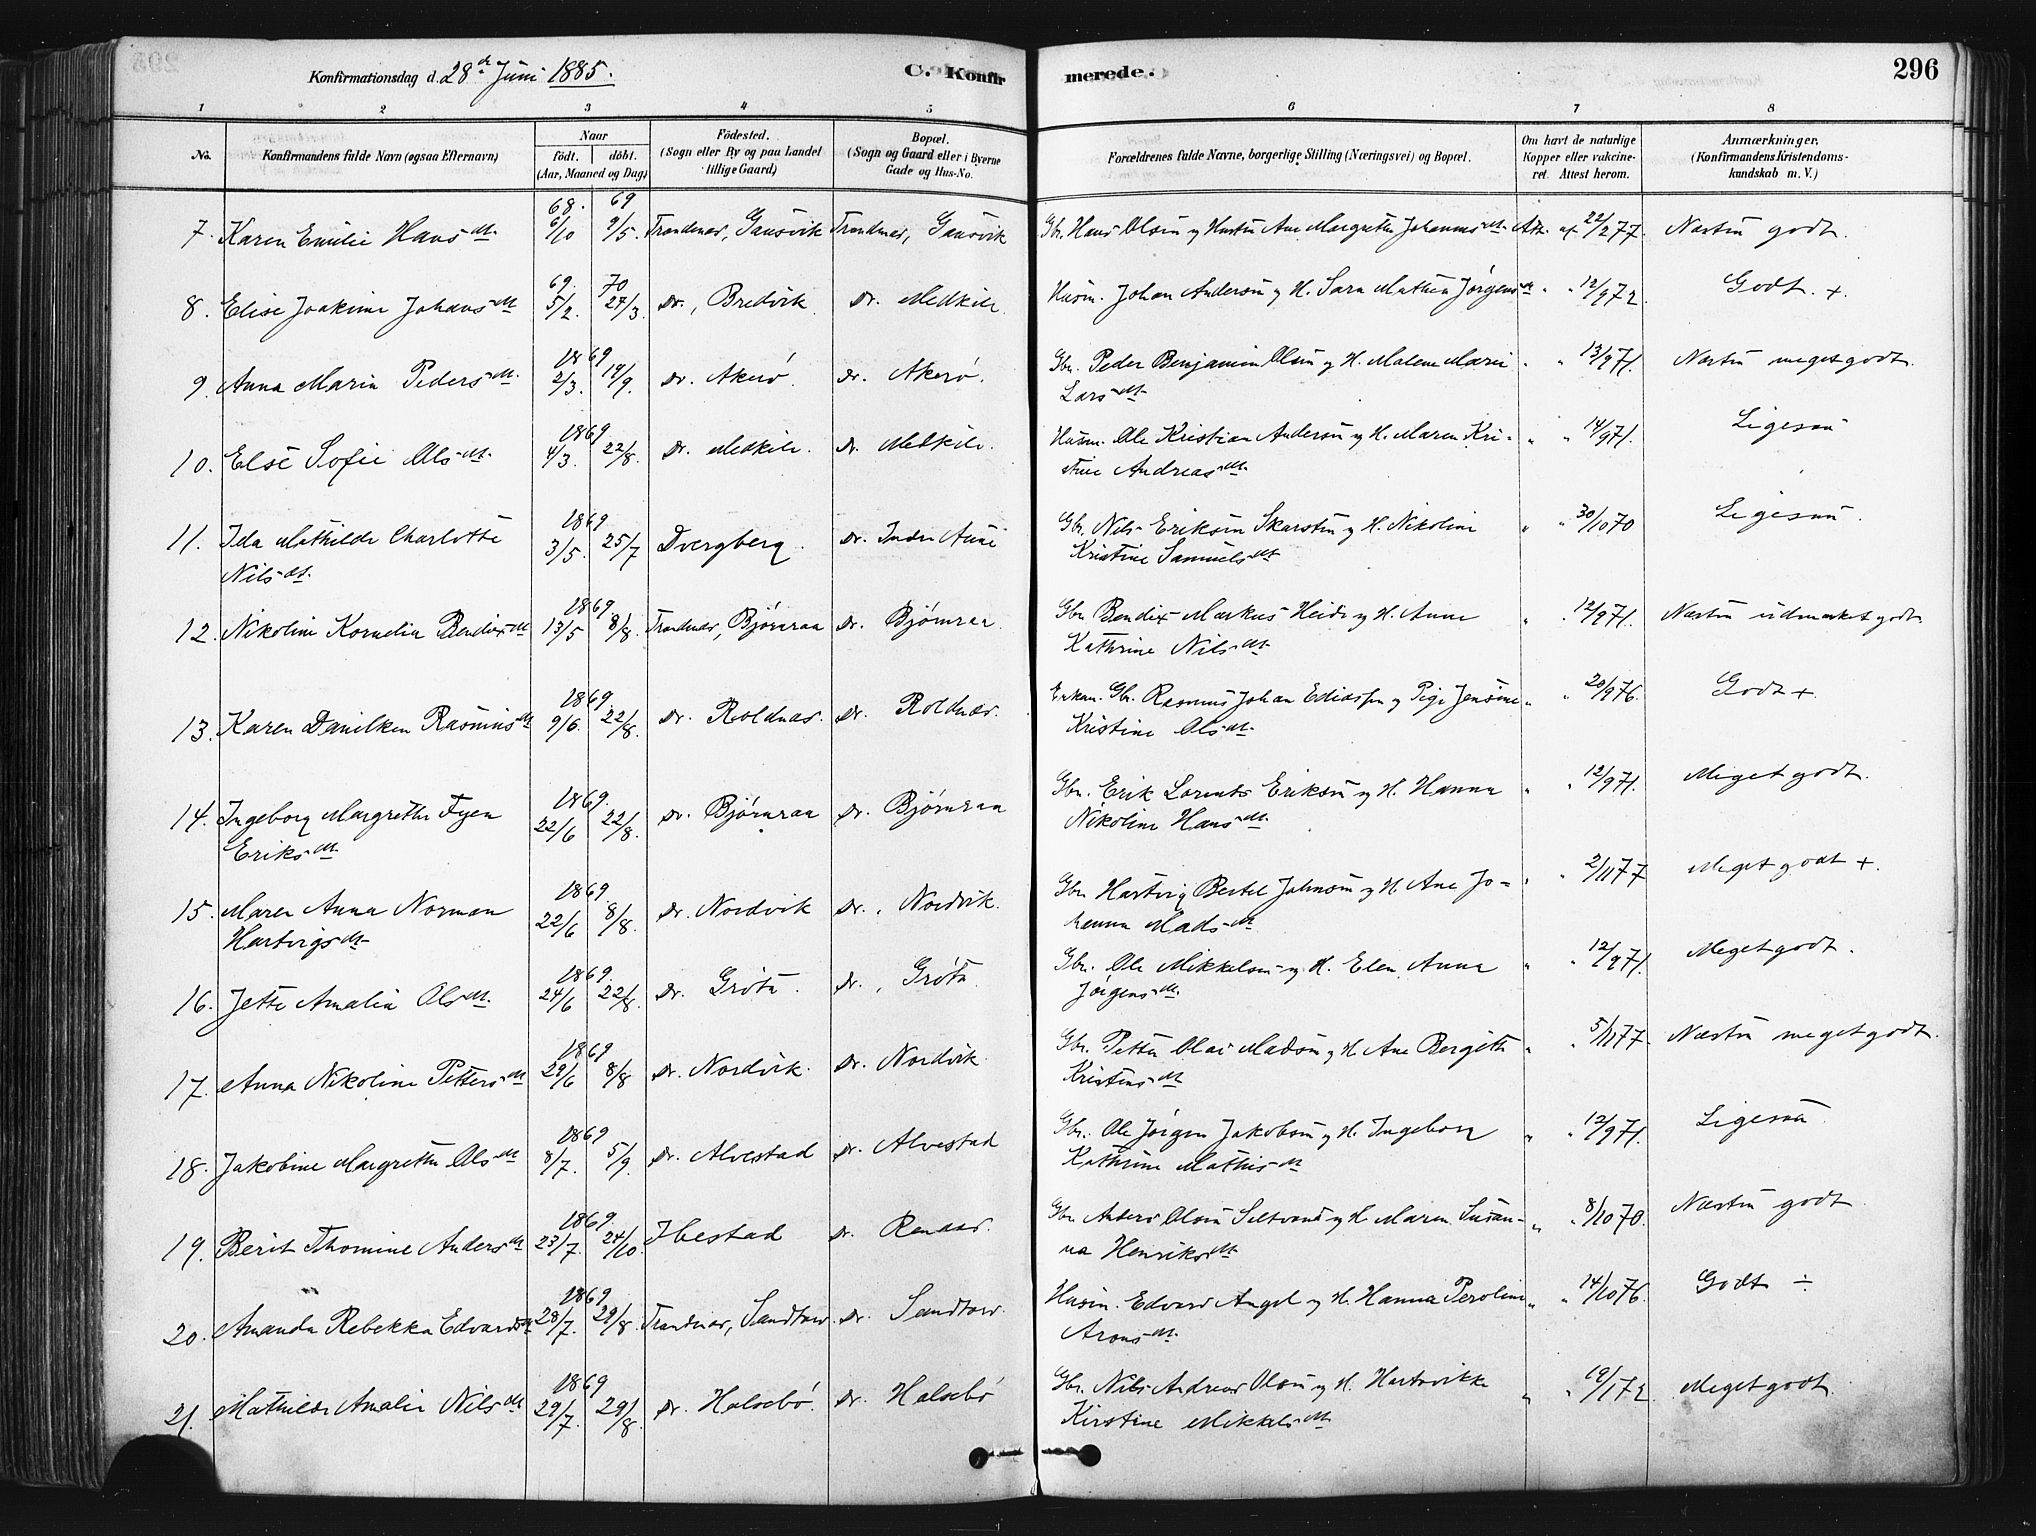 296
Konfirmationsdag d. 28de Juni 1885.
C. Konfirmerede.
1 2 3 4 5 6 7 8
No. Konfirmandens fulde Navn (ogsaa Efternavn) Naar født. døbt. (Aar, Maaned og Dag) Födested. (Sogn eller By og paa Landet tillige Gaard) Bopæl. (Sogn og Gaard eller i Byerne Gade og Hus-No. Forældrenes fulde Navne, borgerlige Stilling (Næringsvei) og Bopæl. Om havt de naturlige Kopper eller vakcineret. Attest herom. Anmærkninger. (Konfirmandens Kristendomskundskab m. V.)
68. 69
7. Karen Emilie Hansdt. 6/10 9/5. Trondenæs, Gausvik Trondenæs, Gausvik Gbr. Hans Olsen og Hustru Ane Margrethe Johannesdt. Att. af 22/2 77. Næsten godt.
69. 70
8. Elise Joakime Johansdt 5/2. 27/3 Do., Bredvik Do. Medkile Husm. Johan Andersen og H. Sara Mathea Jørgensdt " " 12/9 72. Godt. +.
1869
9. Anna Maria Pedersdt. 2/3. 19/9. Do. Akerø. Do. Akerø. Gbr. Peder Benjamin Olsen og H. Malene Marie " " 13/9 71. Næsten meget godt.
Larsdt.
1869
10. Else Sofie Olsdt. 4/3. 22/8. Do. Medkile. Do. Medkile. Husm. Ole Kristian Andersen og H. Maren Kri- " " 14/9 71. Ligesaa
stine Andreasdt.
1869
11. Ida Mathilde Charlotte 3/5. 25/7 Dvergberg. Do. Indre Aune Gbr. Nils Eriksen Skarsten og H. Nikoline " " 30/10 70 Ligesaa.
Nilsdt. Kristine Samuelsdt
1869
12. Nikoline Kornelia Bendixdt 13/5 8/8. Trondenæs, Bjørnraa Do. Bjørnraa. Gbr. Bendix Markus Heide og H. Anne " " 12/9 71. Næsten udmærket godt.
Kathrine Nilsdt.
1869
13. Karen Danilken Rasmusdt 9/6. 22/8. Do. Roldnæs. Do. Roldnæs. Enkem. Gbr. Rasmus Johan Ediassen og Pige Jensine " " 20/9 76. Godt +.
Kristine Olsdt.
1869.
14. Ingeborg Margrethe Fyen 22/6 22/8. Do. Bjørnraa Do. Bjørnraa Gbr. Erik Lorents Eriksen og H. Hanna " " 12/9 71. Meget godt.
Eriksdt Nikoline Hansdt.
1869.
15. Maren Anna Norman 22/6 8/8. Do. Nordvik Do. Nordvik. Gbr. Hartvig Bertel Johnsen og H. Ane Jo- " " 2/11 77 Meget godt +.
Hartvigsdt hanna Madsdt
1869.
16. Jette Amalia Olsdt. 24/6 22/8. Do. Grøta. Do. Grøta. Gbr. Ole Mikkelsen og H. Elen Anna " " 12/9 71. Meget godt.
Jørgensdt.
1869
17. Anna Nikoline Pettersdt 29/6 8/8 Do. Nordvik. Do. Nordvik. Gbr. Petter Olai Madsen og H. Ane Bergitte " " 5/11 77. Næsten meget godt.
Kristensdt
1869
18. Jakobine Margrethe Olsdt 8/7. 5/9. Do. Alvestad Do. Alvestad Gbr. Ole Jørgen Jakobsen og H. Ingeborg " " 12/9 71. Ligesaa
Kathrine Mathisdt
1869
19. Berit Thomine Andersdt 23/7. 24/10. Ibestad Do. Renaas. Gbr. Anders Olsen Seltvand og H. Maren Susan- " " 8/10 70. Næsten godt
na Henriksdt.
1869
20. Amanda Rebekka Edvardsdt 28/7. 29/8. Trondenæs, Sandtorv. Do. Sandtorv. Husm. Edvard Angel og H. Hanna Peroline " " 14/10 76. Godt ÷
Aronsdt.
1869
21. Mathilde Amalie Nilsdt 29/7. 29/8. Do. Halsebø. Do. Halsebø Gbr. Nils Andreas Olsen og H. Hartvikke " " 19/1 72. Meget godt.
Kirstine Mikkelsdt.